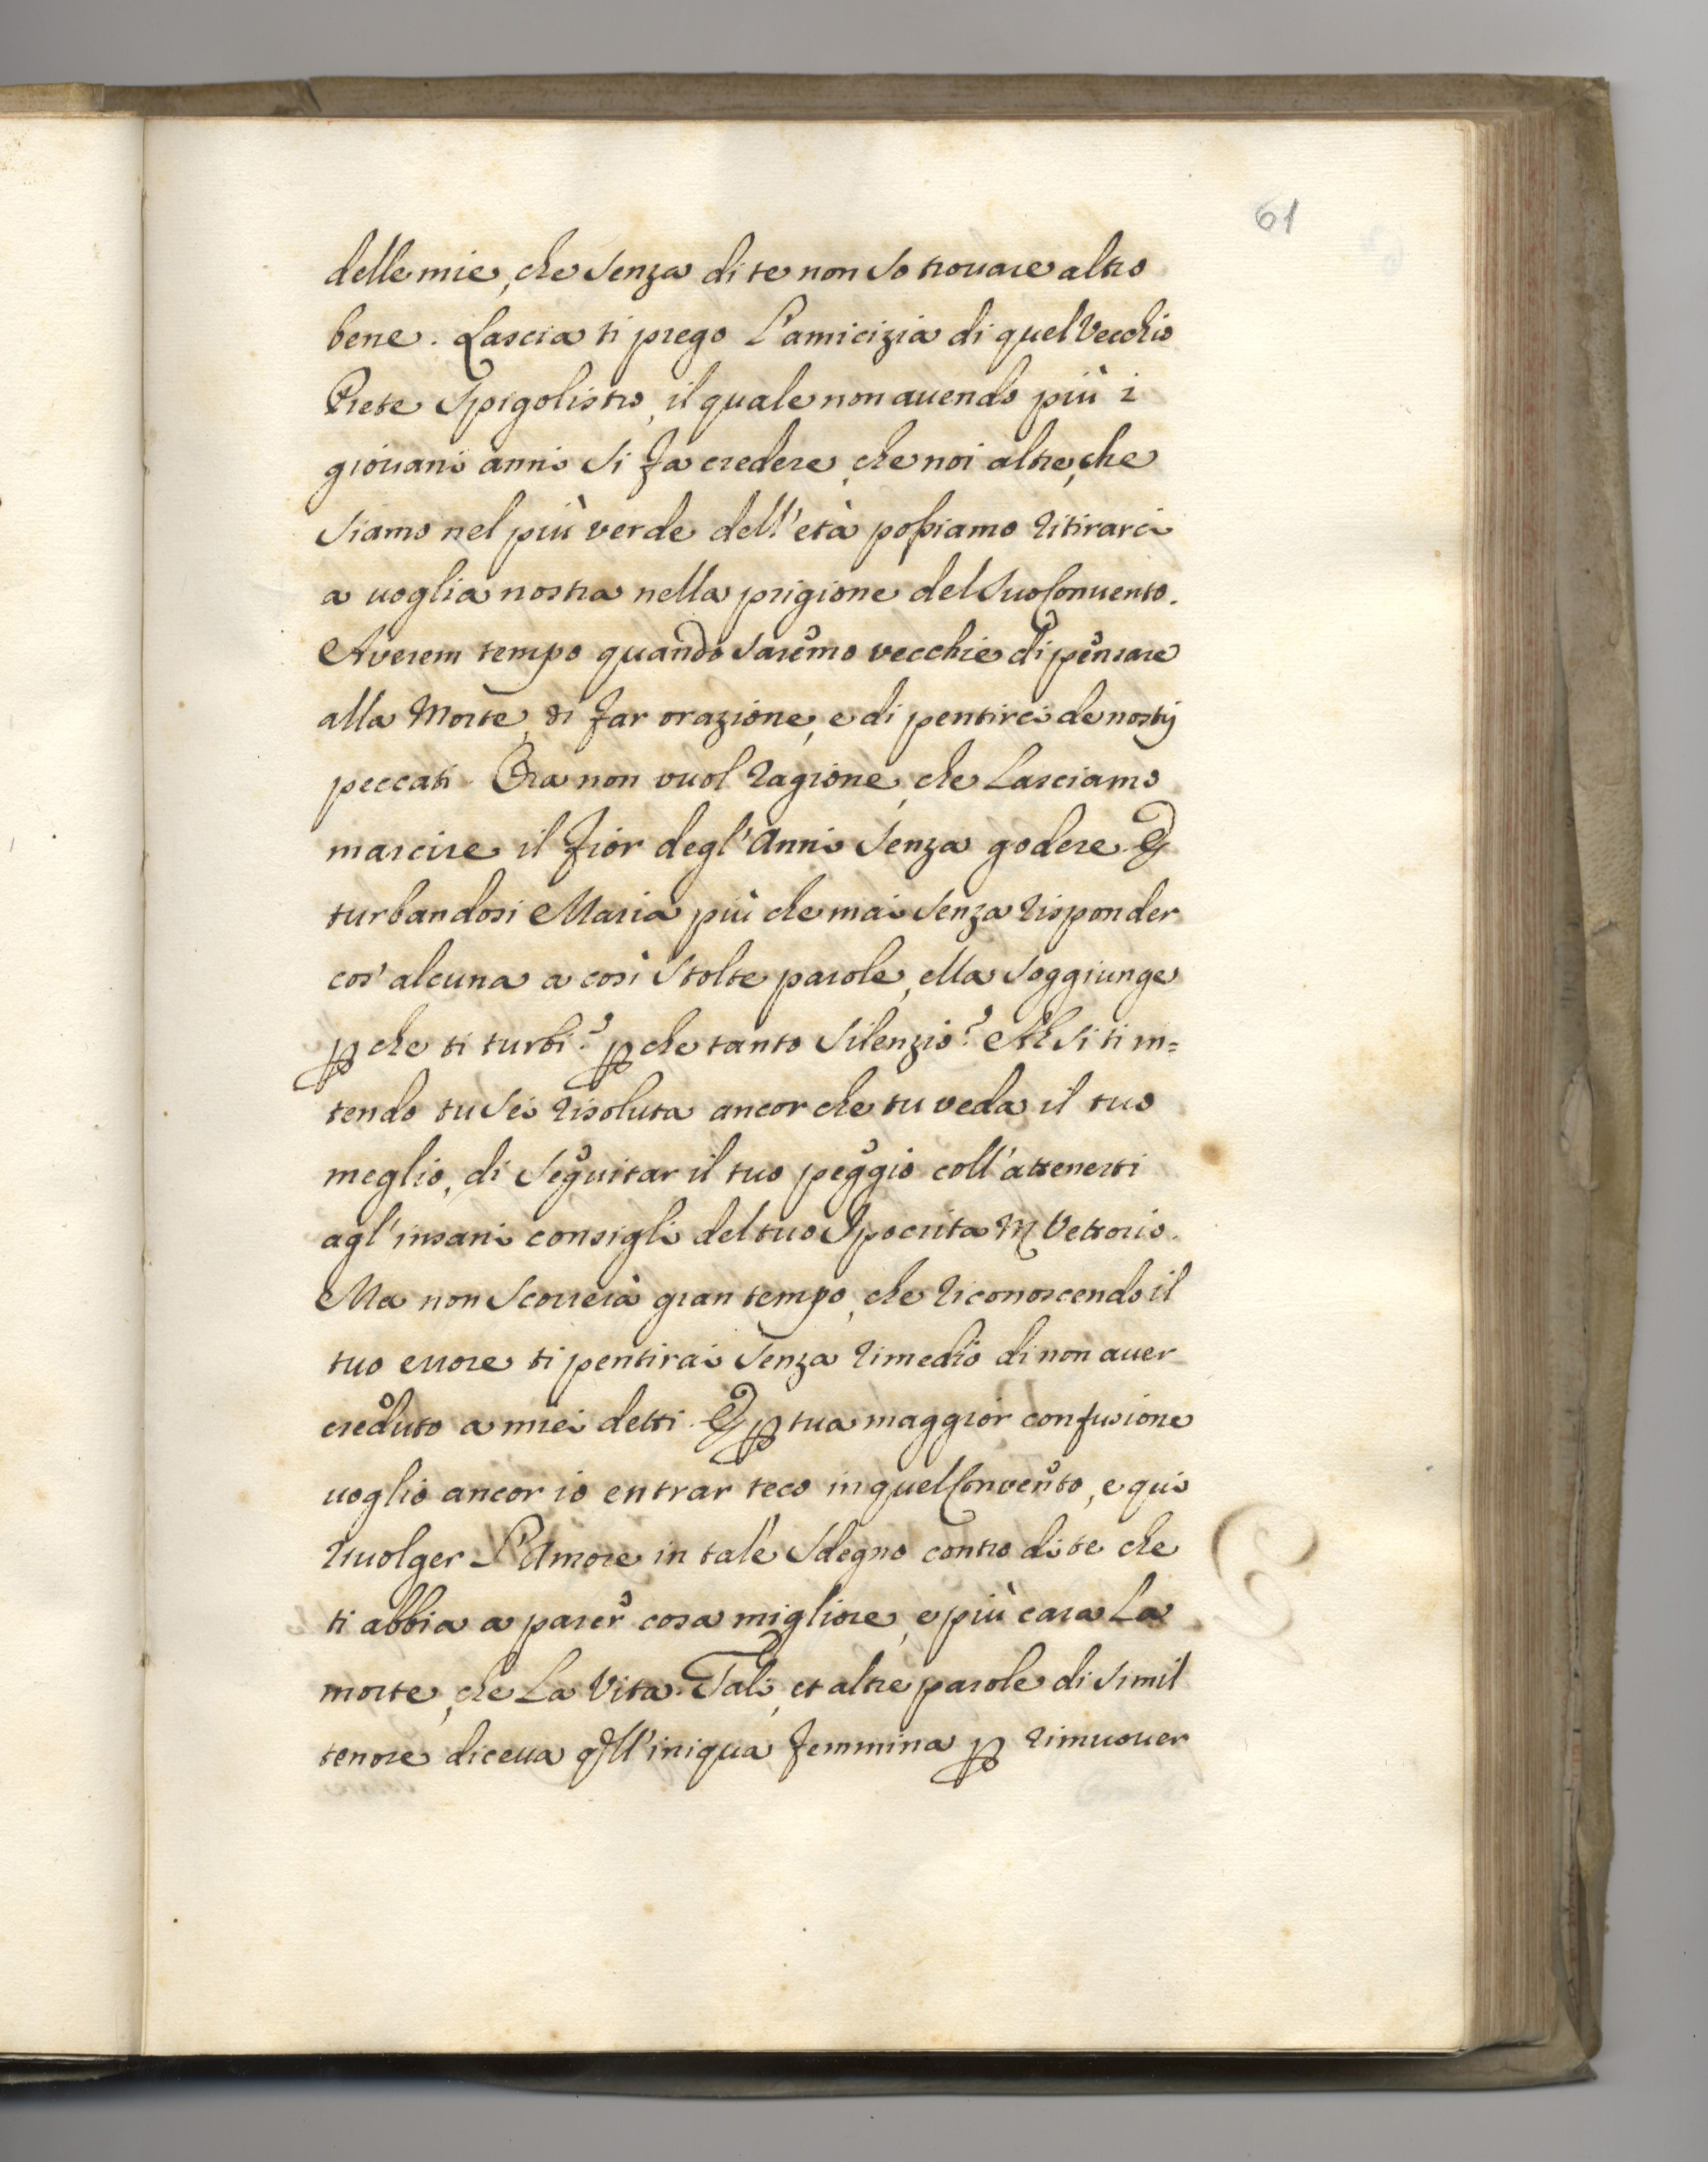 61
delle mie, che senza di te non so trouare altro
bene. Lascia ti prego l'amicizia di quel Vecchio
Prete Spigolistro, il quale non auendo più i
giouani anni si fa credere, che noi altre, che
siamo nel più verde dell'età possiamo ritirarci
a uoglia nostra nella prigione del suo Conuento.
Averem tempo quando saremo vecchie di pensare
alla Morte, di far orazione, e di pentirci de nostrj
peccati. Ora non vuol ragione, che lasciamo
marcire il fior degl'Anni senza godere. E
turbandosi Maria più che mai senza risponder
cos'alcuna a così stolte parole, ella soggiunge
ꝑche ti turbi? ꝑche tanto silenzio? Ah si ti in=
tendo tu sei risoluta ancor che tu veda il tuo
meglio, di seguitar il tuo peggio coll'attenerti
agl'insani consigli del tuo Ipocrita M Vettorio.
Ma non scorrerà gran tempo, che riconoscendo il
tuo errore ti pentirai senza rimedio di non auer
creduto a miei detti. E ꝑ tua maggior confusione
uoglio ancor io entrar teco in quel Convento, e qui
riuolger l'Amore in tale sdegno contro di te che
ti abbia a parer cosa migliore, e più cara la
morte, che la Vita. Tali, et altre parole di simil
tenore diceua qll'iniqua femmina ꝑ rimuouer